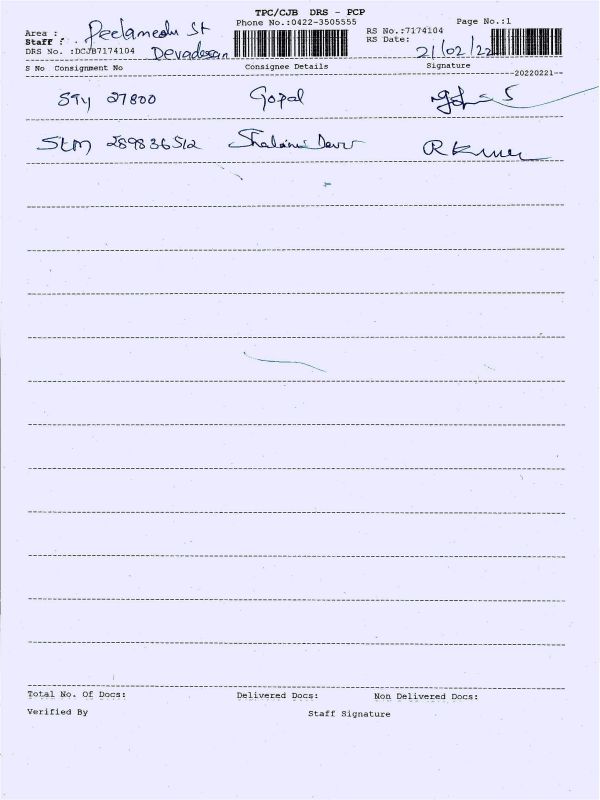 TPC/CJB DRS - PCP
Phone No.:0422-3505555
Page No.:1
Area : Peelamedu St
RS No.:7174104
Staff : Devadasan
RS Date: 21/02/22
DRS No. :DCJB7174104
S No Consignment No Consignee Details Signature
--20220221--
27800 Gopal
STM 289836512 Shalini Devi
R Kumar
Total No. Of Docs: Delivered Docs: Non Delivered Docs:
Verified By Staff Signature